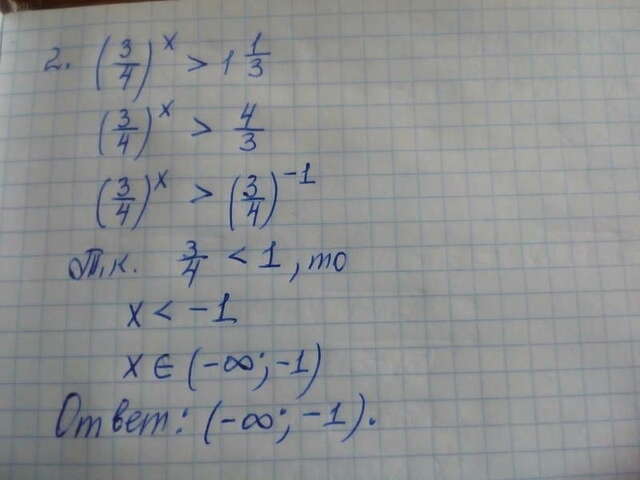 2. (3/4)^x > 1 1/3
(3/4)^x > 4/3
(3/4)^x > (3/4)^-1
Т.к. 3/4 < 1, то
x < -1
x ∈ (-∞; -1)
Ответ: (-∞; -1).